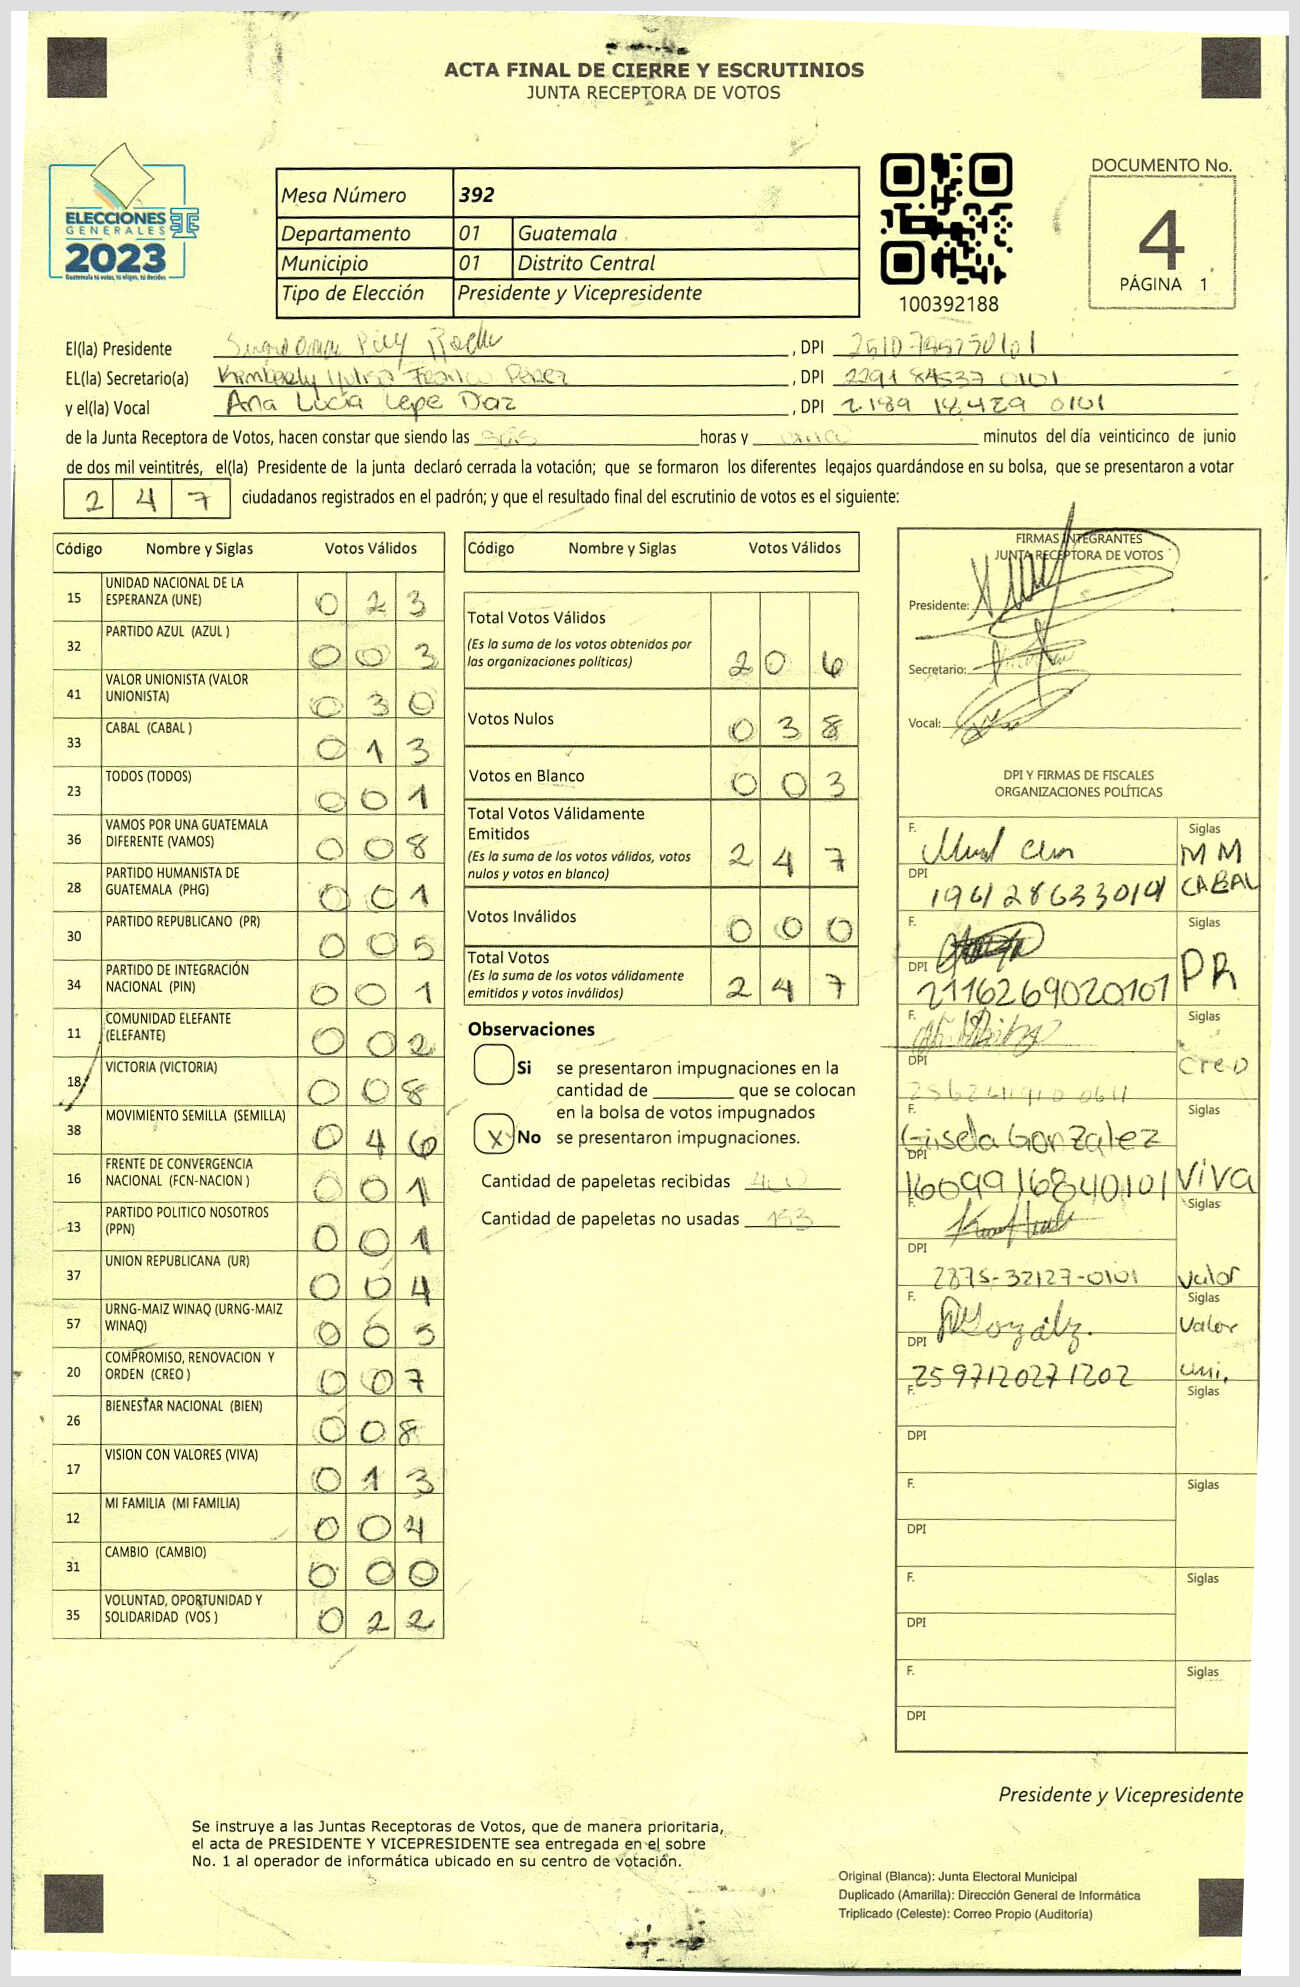 ACTA FINAL DE CIERRE Y ESCRUTINIOS
JUNTA RECEPTORA DE VOTOS
ELECCIONES
GENERALES
2023
Guatemala tú votas, tú eliges, tú decides
Mesa Número 392
Departamento 01 Guatemala
Municipio 01 Distrito Central
Tipo de Elección Presidente y Vicepresidente
100392188
DOCUMENTO No.
4
PÁGINA 1
El(la) Presidente , DPI
EL(la) Secretario(a) Kimberly Franco Pérez , DPI 2291 84537 0101
y el(la) Vocal Ana Lucia Lepe Diaz , DPI 2189 18429 0101
de la Junta Receptora de Votos, hacen constar que siendo las seis horas y minutos del día veinticinco de junio
de dos mil veintitrés, el(la) Presidente de la junta declaró cerrada la votación; que se formaron los diferentes legajos guardándose en su bolsa, que se presentaron a votar
2 4 7 ciudadanos registrados en el padrón; y que el resultado final del escrutinio de votos es el siguiente:
Código Nombre y Siglas Votos Válidos
15 UNIDAD NACIONAL DE LA ESPERANZA (UNE) 0 2 3
32 PARTIDO AZUL (AZUL ) 0 0 3
41 VALOR UNIONISTA (VALOR UNIONISTA) 0 3 0
33 CABAL (CABAL ) 0 1 3
23 TODOS (TODOS) 0 0 1
36 VAMOS POR UNA GUATEMALA DIFERENTE (VAMOS) 0 0 8
28 PARTIDO HUMANISTA DE GUATEMALA (PHG) 0 0 1
30 PARTIDO REPUBLICANO (PR) 0 0 5
34 PARTIDO DE INTEGRACIÓN NACIONAL (PIN) 0 0 1
11 COMUNIDAD ELEFANTE (ELEFANTE) 0 0 2
18 VICTORIA (VICTORIA) 0 0 8
38 MOVIMIENTO SEMILLA (SEMILLA) 0 4 6
16 FRENTE DE CONVERGENCIA NACIONAL (FCN-NACION ) 0 0 1
13 PARTIDO POLITICO NOSOTROS (PPN) 0 0 1
37 UNION REPUBLICANA (UR) 0 0 4
57 URNG-MAIZ WINAQ (URNG-MAIZ WINAQ) 0 0 5
20 COMPROMISO, RENOVACION Y ORDEN (CREO ) 0 0 7
26 BIENESTAR NACIONAL (BIEN) 0 0 8
17 VISION CON VALORES (VIVA) 0 1 3
12 MI FAMILIA (MI FAMILIA) 0 0 4
31 CAMBIO (CAMBIO) 0 0 0
35 VOLUNTAD, OPORTUNIDAD Y SOLIDARIDAD (VOS ) 0 2 2
Código Nombre y Siglas Votos Válidos
Total Votos Válidos
(Es la suma de los votos obtenidos por
las organizaciones políticas) 2 0 6
Votos Nulos 0 3 8
Votos en Blanco 0 0 3
Total Votos Válidamente
Emitidos
(Es la suma de los votos válidos, votos
nulos y votos en blanco) 2 4 7
Votos Inválidos 0 0 0
Total Votos
(Es la suma de los votos válidamente
emitidos y votos inválidos) 2 4 7
Observaciones
Si se presentaron impugnaciones en la
cantidad de ________ que se colocan
en la bolsa de votos impugnados
X No se presentaron impugnaciones.
Cantidad de papeletas recibidas 400
Cantidad de papeletas no usadas 153
FIRMAS INTEGRANTES
JUNTA RECEPTORA DE VOTOS
Presidente:
Secretario:
Vocal:
DPI Y FIRMAS DE FISCALES
ORGANIZACIONES POLÍTICAS
F. Siglas
MM
DPI CABAL
F. Siglas
DPI 2116269020101 PR
F. Siglas
DPI Creo
F. Siglas
Gisela Gonzalez
DPI 1609916840101 VIVA
F. Siglas
DPI 2875-32127-0101 Valor
F. Siglas
Valor
DPI 2597120271202 uni.
F. Siglas
DPI
F. Siglas
DPI
F. Siglas
DPI
F. Siglas
DPI
Presidente y Vicepresidente
Se instruye a las Juntas Receptoras de Votos, que de manera prioritaria,
el acta de PRESIDENTE Y VICEPRESIDENTE sea entregada en el sobre
No. 1 al operador de informática ubicado en su centro de votación.
Original (Blanca): Junta Electoral Municipal
Duplicado (Amarilla): Dirección General de Informática
Triplicado (Celeste): Correo Propio (Auditoría)